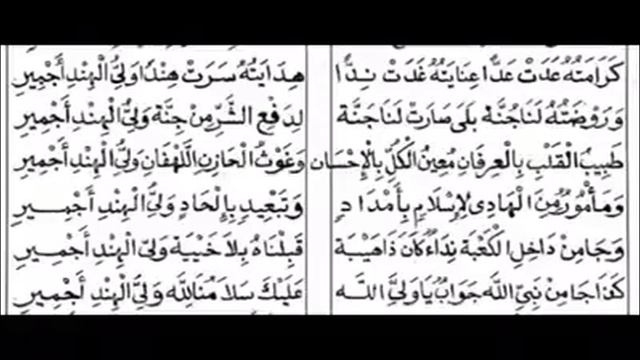 كَرَامَتُهُ عَدَتْ عَدًّا عِنَايَتُهُ غَدَتْ نِدًّا هِدَايَتُهُ سَرَتْ هِنْدًا وَلِيُّ الْهِنْدِ أَجْمِيرِ
وَرَوْضَتُهُ لَنَا جُنَّةْ بَلَى صَارَتْ لَنَا جَنَّةْ لِدَفْعِ الشَّرِّ مِنْ جِنَّةْ وَلِيُّ الْهِنْدِ أَجْمِيرِ
طَبِيبُ الْقَلْبِ بِالْعِرْفَانِ مُعِينُ الْكُلِّ بِالْإِحْسَانِ وَغَوْثُ الْحَازِنِ اللَّهْفَانِ وَلِيُّ الْهِنْدِ أَجْمِيرِ
وَمَأْمُورٌ مِنَ الْهَادِي لِإِسْلَامٍ بِأَمْدَادٍ وَتَبْعِيدٍ بِإِلْحَادٍ وَلِيُّ الْهِنْدِ أَجْمِيرِ
وَجَا مِنْ دَاخِلِ الْكَعْبَةِ نِدَاءٌ كَانَ ذَاهَيْبَةِ قَبِلْنَاهُ بِلَا خَيْبَةِ وَلِيُّ الْهِنْدِ أَجْمِيرِ
كَذَا جَا مِنْ نَبِيِّ اللهِ جَوَابٌ يَا وَلِيَّ اللهِ عَلَيْكَ سَلَامُنَا لِلهِ وَلِيُّ الْهِنْدِ أَجْمِيرِ